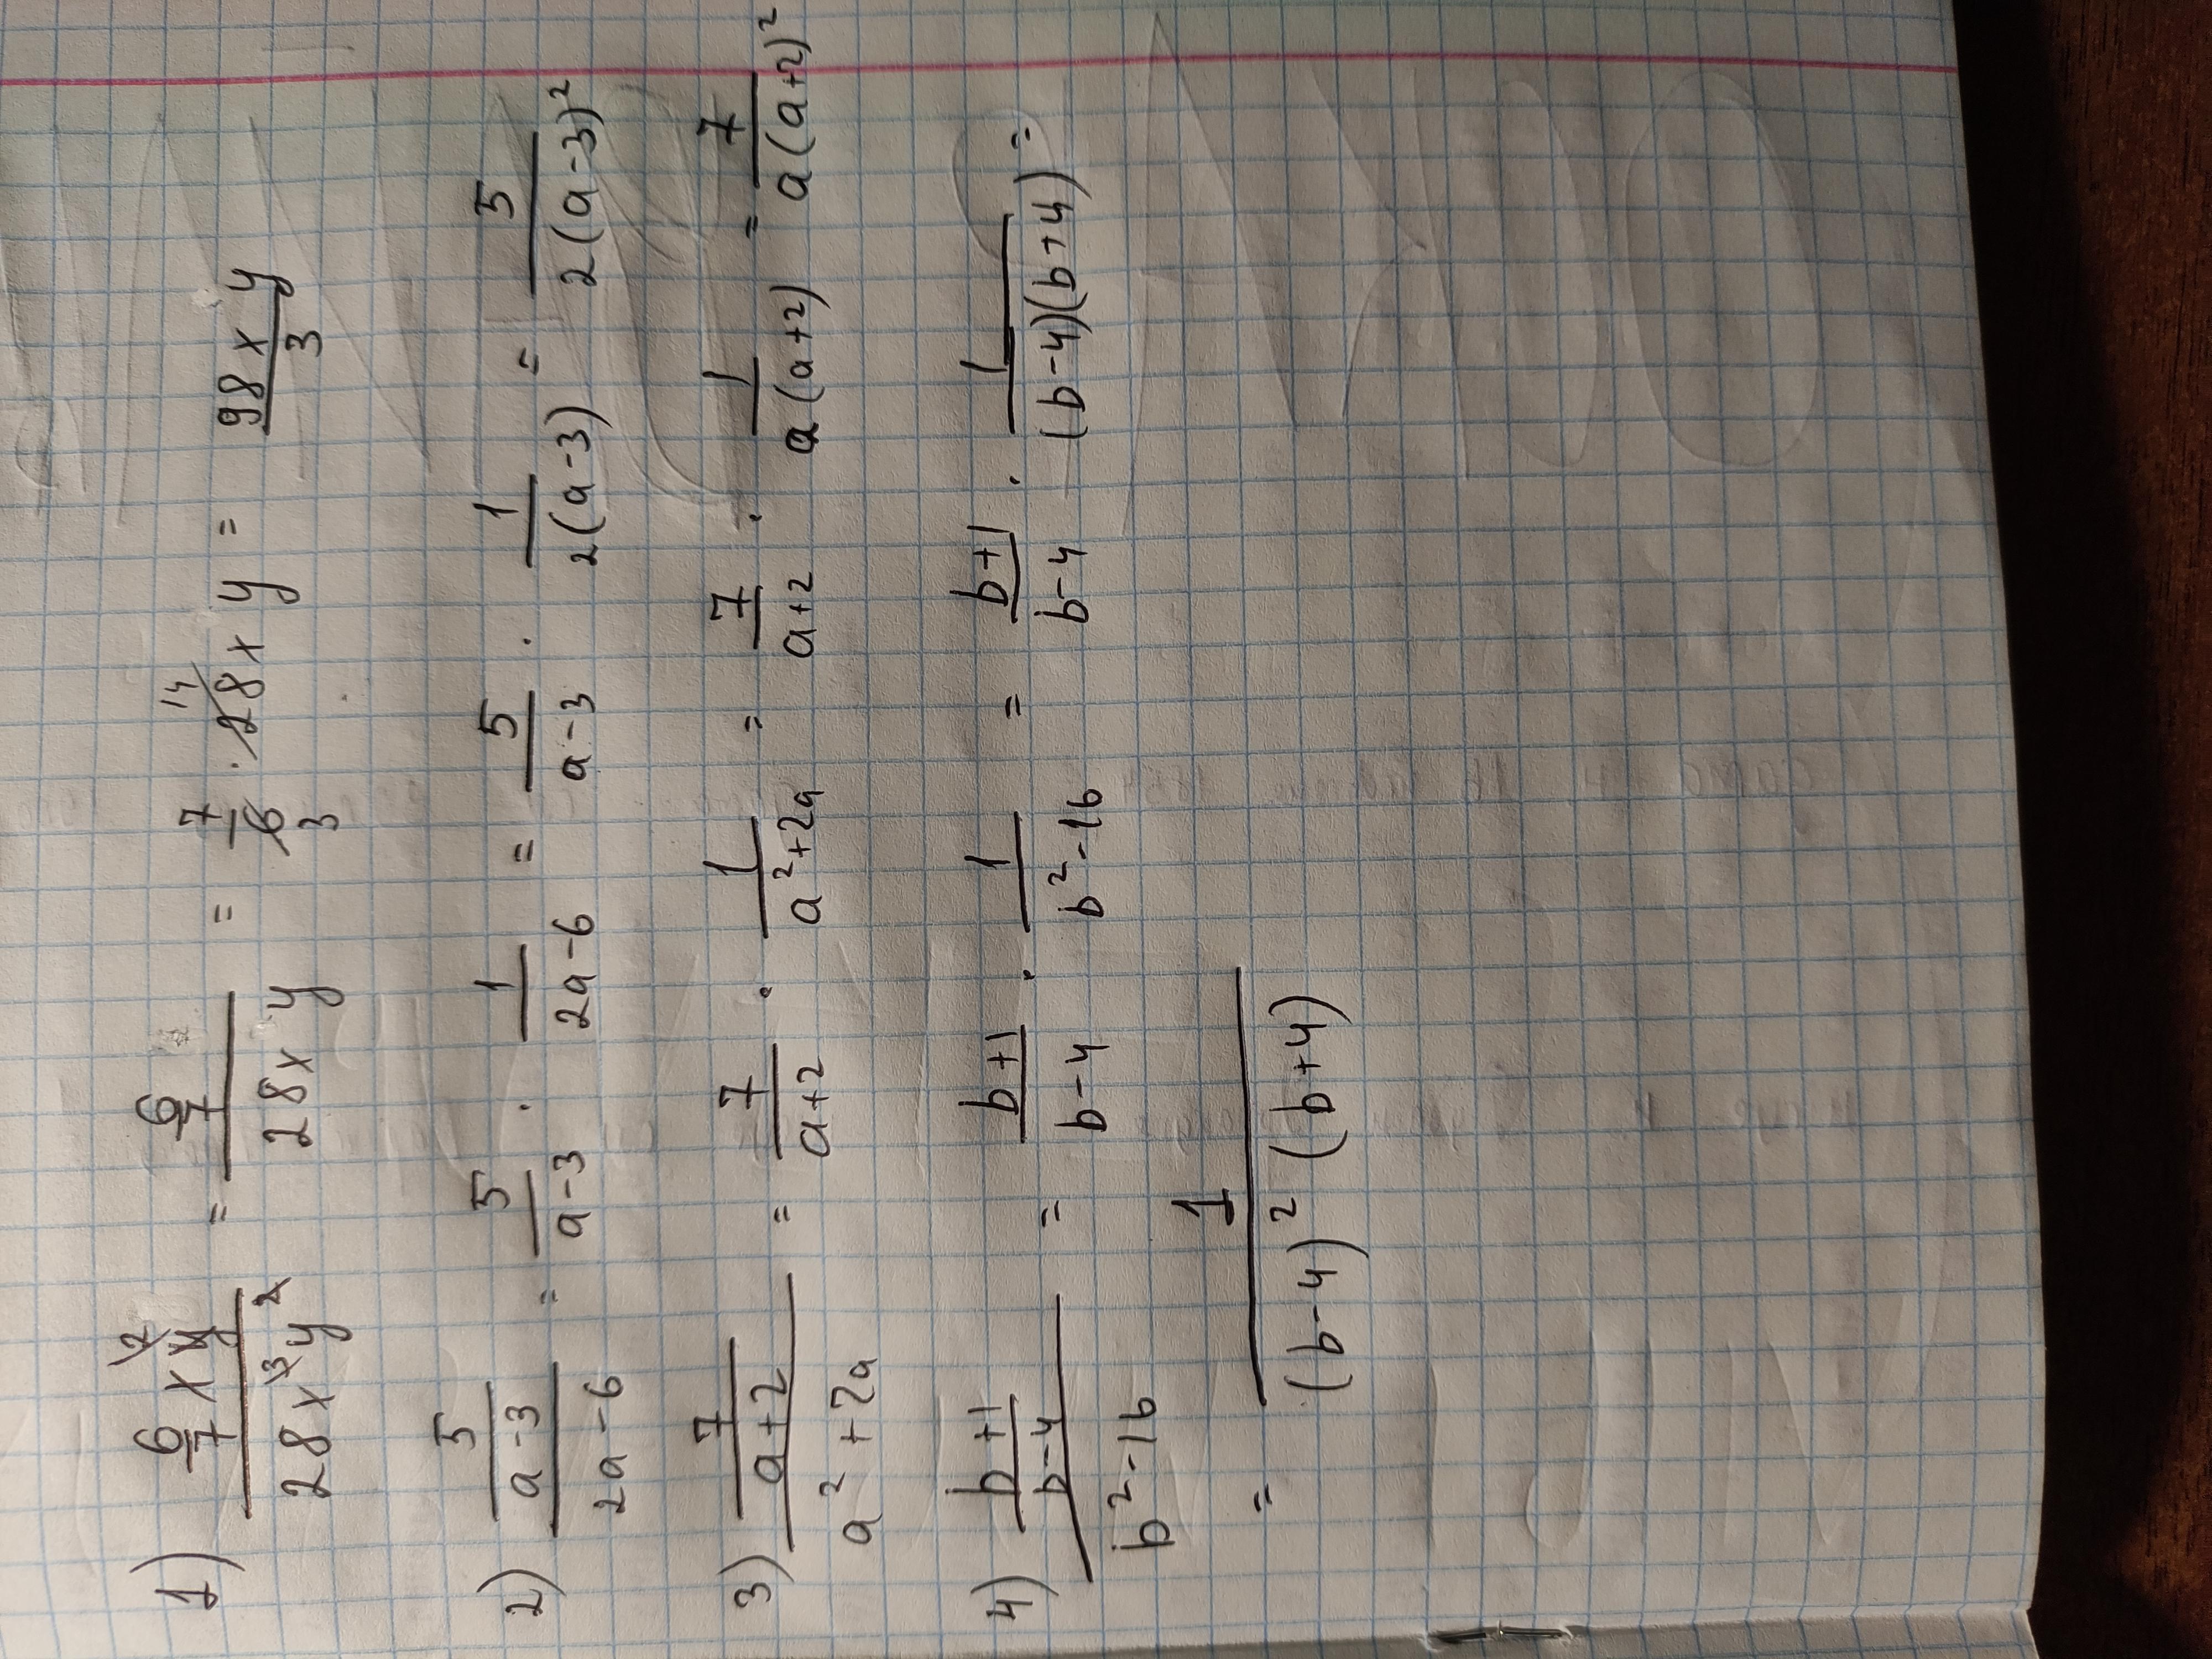 1) (6/7 x²y)/(28x³y²) = (6/7)/(28xy) = 7/6 · 28xy = 98xy/3
14
3
2) (5/(a-3))/(2a-6) = 5/(a-3) · 1/(2a-6) = 5/(a-3) · 1/(2(a-3)) = 5/(2(a-3)²)
3) (7/(a+2))/(a²+2a) = 7/(a+2) · 1/(a²+2a) = 7/(a+2) · 1/(a(a+2)) = 7/(a(a+2)²)
4) ((b+1)/(b-4))/(b²-16) = (b+1)/(b-4) · 1/(b²-16) = (b+1)/(b-4) · 1/((b-4)(b+4)) =
= 1/((b-4)²(b+4))